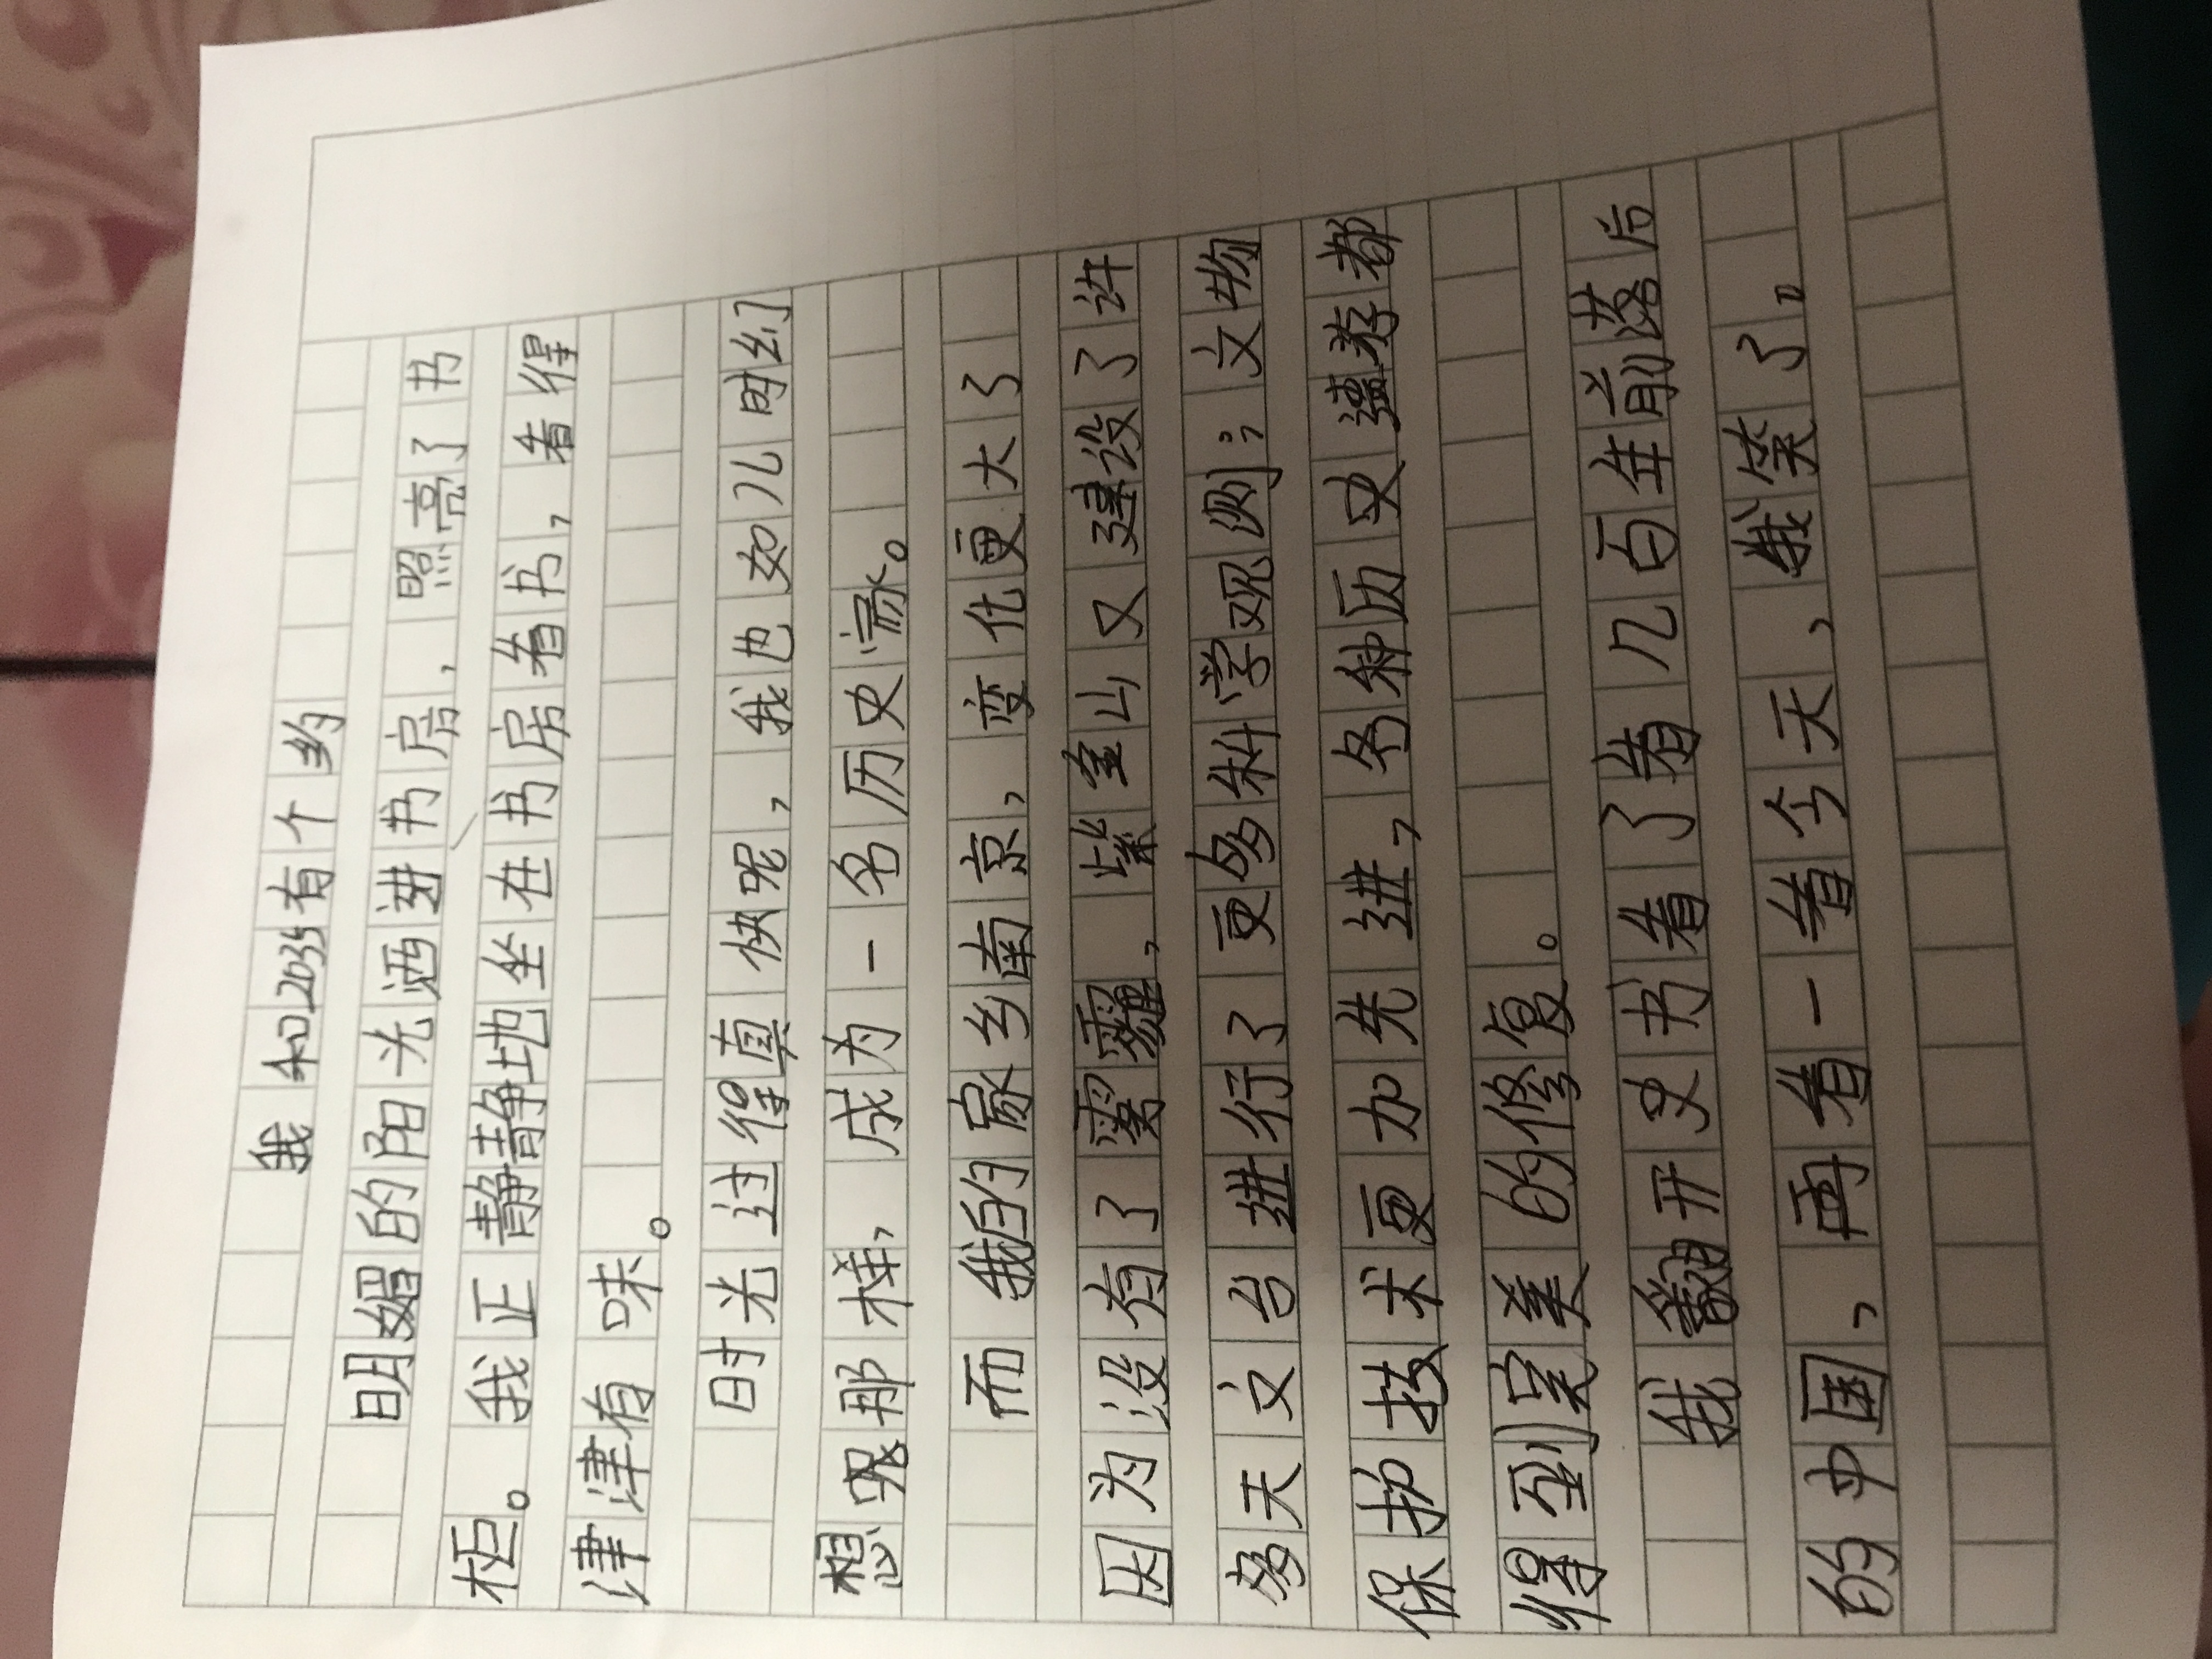 我和2035有个约
明媚的阳光洒进书房，照亮了书
柜。我正静静地坐在书房看书，看得
津津有味。
时光过得真快呢，我也如儿时幻
想那样，成为一名历史家。
而我的家乡南京，变化更大了
因为没有了雾霾，紫金山又建设了许
多天文台进行了更多科学观测；文物
保护技术更加先进，各种历史遗存都
得到完美的修复。
我翻开史书看了看几百年前落后
的中国，再看一看今天，我笑了。